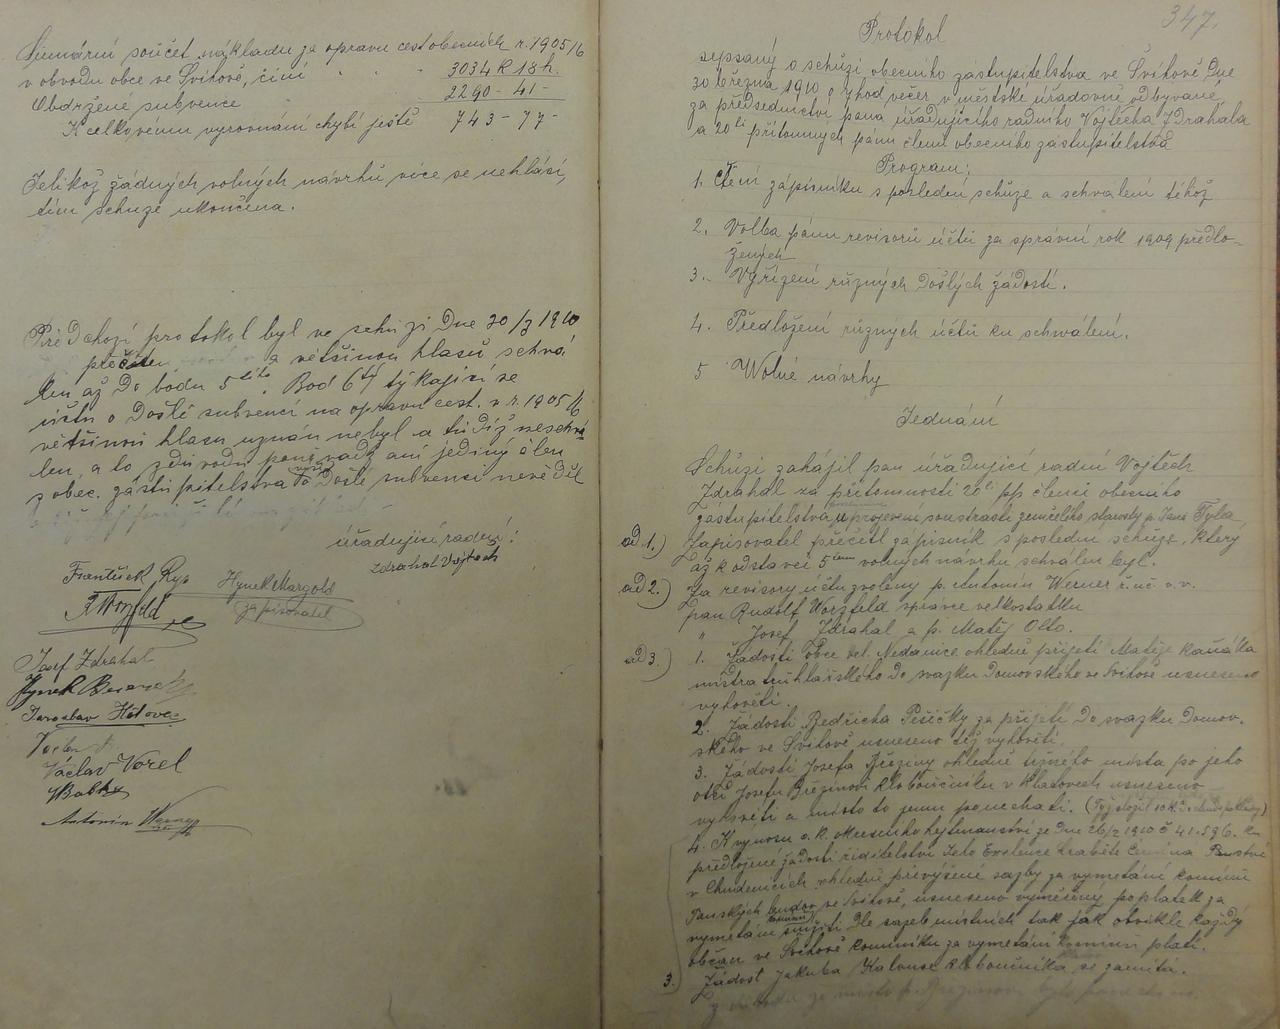 Sumární součet nákladu za opravu cest obecních r. 1905/6
v obvodu obce ve Švihově, činí . . . 3034 K 18 h.
Obdržené subvence 2290 - 41 -
K celkovému vyrovnání chybí ještě 743 - 77 -
Jelikož žádných volných návrhů více se nehlásí,
tím schůze ukončena.
Předchozí protokol byl ve schůzi dne 30/3 1910
přečten a většinou hlasů schvá-
len až do bodu 5tého. Bod 6tý týkající se
účtu o došlé subvenci na opravu cest. v r. 1905/6
většinou hlasů uznán nebyl a tudíž neschvá-
len, a to z důvodu poněvadž ani jediný člen
z obec. zastupitelstva o došlé subvenci nevěděl
úřadující radní:
Zdrahal Vojtěch
František Ryp
Hynek Margold
zapisovatel
R Worzfeld
Josef Zdrahal
Hynek
Jaroslav Hötovec
Václav
Václav Vorel
Babka
Antonín Werner
347.
Protokol
sepsaný o schůzi obecního zastupitelstva ve Švihově dne
30 března 1910 o 7 hod večer v městské úřadovně odbývané
za předsednictví pana úřadujícího radního Vojtěcha Zdrahala
a 20ti přítomných pánu členu obecního zastupitelstva
Program:
1. Čtení zápisníku s poslední schůze a schválení téhož
2. Volba pánu revisorů účtů za správní rok 1909 předlo-
žených
3. Vyřízení různých došlých žádostí.
4. Předložení různých účtů ku schválení.
5 Wolné návrhy
Jednání
Schůzi zahájil pan úřadující radní Vojtěch
Zdrahal za přítomnosti 20ti pp členů obecního
zastupitelstva projevení soustrasti zemřelého starosty p. Jana Tyla
ad 1.) Zapisovatel přečetl zápisník s poslední schůze, který
až k odstavci 5tému volných návrhu schválen byl.
ad 2.) Za revisory účtu zvoleny p. Antonín Werner ř. uč. v. v.
pan Rudolf Worzfeld správce velkostatku
" Josef Zdrahal a p. Matěj Otto.
ad 3.) 1. Žádosti obce vel. Nedanice ohledně přijetí Matěje Kaňáka
mistra truhlářského do svazku domovského ve Švihově usneseno
vyhověti.
2. Žádosti Bedřicha Pešičky za přijetí do svazku domov-
ského ve Švihově usneseno též vyhověti.
3. Žádosti Josefa Březiny ohledně tržného místa po jeho
otci Josefu Březinovi kloboučníku v Klatovech usneseno
vyhověti a místo to jemu ponechati. (Týž složil 10 K
4. K výnosu c. k. okresního hejtmanství ze dne 26/2 1910 č 41.596. ku
předložené žádosti ředitelství Jeho Excelence hraběte Černína panství
v Chudenicích ohledně převýšené sazby za vymetání komínů
Panských budov ve Švihově, usneseno vyměřený poplatek za
vymetání komínů snížiti dle sazeb místních tak jak obvykle každý
občan ve Švihově kominíku za vymetání komínů platí.
3. Žádost Jakuba Kalouse kloboučníka se zamítá.
z důvodu že místo p. Březinovi bylo ponecháno.